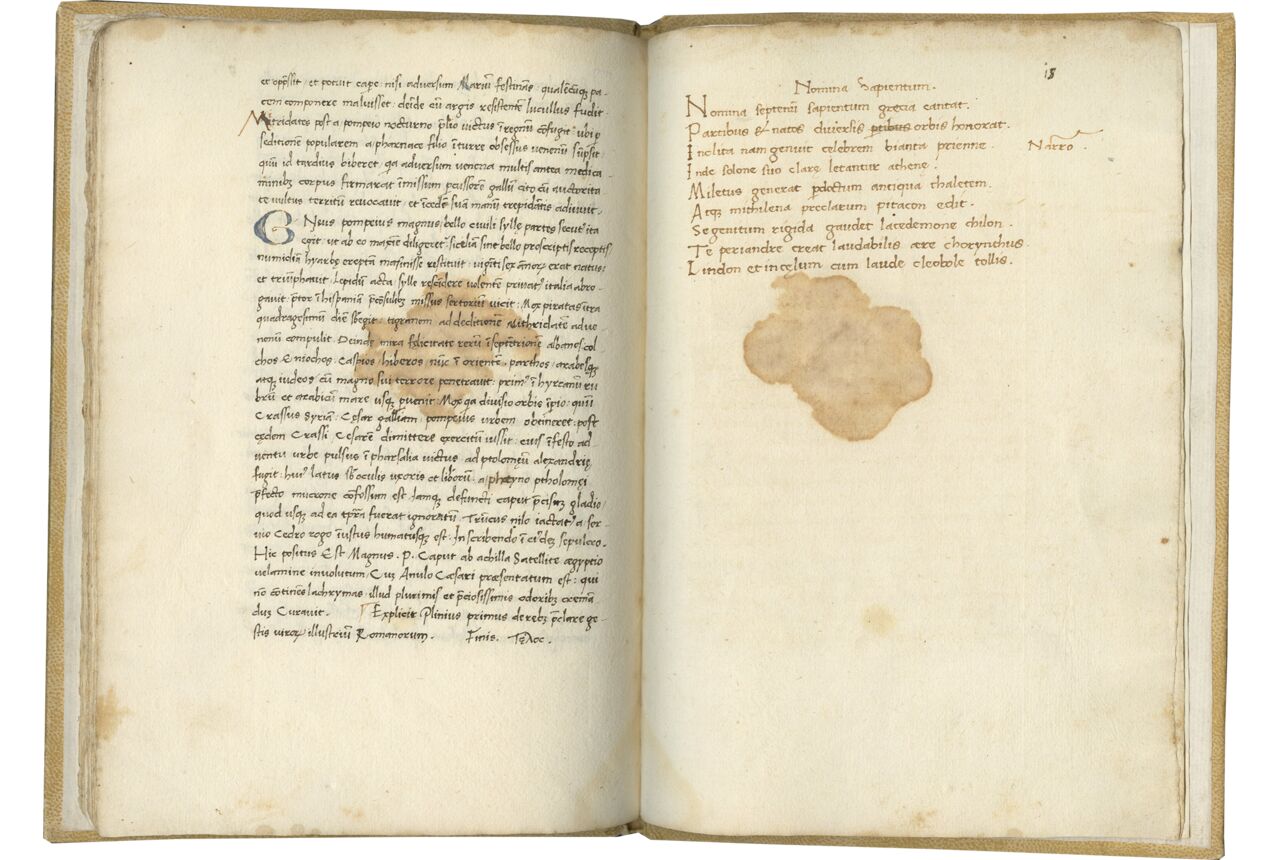 et opp̄ssit, et potuit cape, nisi adversum Mariū festinās, qualēcūqȝ pa-
cem componere maluisset, deīde cū argis resistentē lucullus fudit.
Mitridates post a pompeio nocturno p̄lio victus ī regnū cōfugit, ubi p
seditionē popularem a pharnace filio ī turre obsessus venenū sūpsit,
quū id tardius biberet, qa adversum venena multis antea medica-
minibȝ corpus firmarat īmissum pcussorē gallū cito cū auctorita-
te vultus territū revocavit, et ī cedē suā manū trepidātis adiuvit.
GNeus pompeius magnus, bello civili sylle partes secutꝰ ita
egit, ut ab eo maxīe diligeret, siciliā sine bello proscriptis receptis
numidiā hyarbę ereptam masinisse restituit, vigīti sex anoꝝ erat natus
et triūphavit, Lepidū acta sylle rescidere volentē privatꝰ italia abro-
gavit, p̄tor ī hispaniā p̄cōsulibȝ missus sertoriū vicit, Mox piratas ītra
quadragesimū diē sbegit, tigranem ad deditionē Mithridatē ad ve-
nenū compulit. Deinde mira fęlicitate rerū ī septētrionē albanos col-
chos & niochos, Caspios, hiberos, nūc ī orientē, parthos, arabesqȝ
atqȝ iudeos, cū magno sui terrore penetravit, primꝰ ī hyrcanū ru
brū et arabicū mare usqȝ puenit, Mox qa divisio orbis īpio, quū
Crassus Syriā, Cęsar galliam, pompeius urbem obtineret, post
cędem Crassi, Cesarē dimittere exercitū iussit, cuiꝰ īfesto ad-
ventu urbe pulsus ī pharsalia victus, ad ptolomęū alexandrię
fugit, huiꝰ latus sb oculis uxoris et liborū, a photyno ptholomęi
p̄fecto mucrone cōfossum est. Iamqȝ defuncti caput p̄cisū gladio,
quod usqȝ ad ea tp̄ra fuerat ignoratū. Trūcus nilo iactatꝰ a, ser-
vio Cedro rogo īustus humatusqȝ est, Inscribendo ī eiꝰdē sepulcro.
Hic positus Est Magnus. P. Caput ab achilla Satellite ægyptio
velamine involutum, Cuȝ Anulo Cæsari præsentatum est, qui
nō cōtinēs lachrymas illud plurimis et p̄ciosissimis odoribȝ creman-
duȝ Curavit. Explicit Plinius primus de rebȝ p̄clare ge-
stis viroꝝ illustriū Romanorum. Finis. Τελος.
18
Nomina Sapientum.
Nomina septenū sapientum grecia cantat.
Partibus & natos diversis ptibus orbis honorat.
Inclita nam genuit celebrem bianta prienne. Narro.
Inde solone suo clarę letantur athene.
Miletus generat pdoctum antiqua thaletem.
Atqȝ mithilena preclarum pitacon edit.
Se genitum rigida gaudet lacedemone chilon.
Te periandre creat laudabilis ære chorynthus.
Lindon et in cęlum cum laude cleobole tollis.